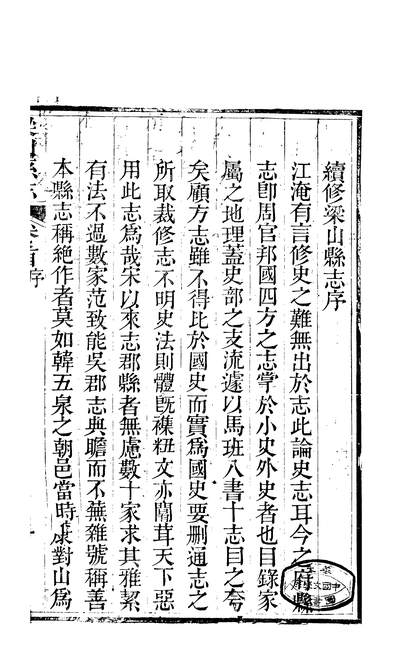 續修梁山縣志序
江淹有言修史之難無出於志此論史志耳今之府縣
志卽周官邦國四方之志掌於小史外史者也目錄家
屬之地理蓋史部之支流遽以馬班八書十志目之夸
矣顧方志雖不得比於國史而實爲國史要删通志之
所取裁修志不明史法則體旣襍糅文亦闒茸天下惡
用此志爲哉宋以來志郡縣者無慮數十家求其雅絜
有法不過數家范致能吳郡志典贍而不蕪雜號稱善
本縣志稱絕作者莫如韓五泉之朝邑當時康對山爲
梁山縣志 卷首序 一